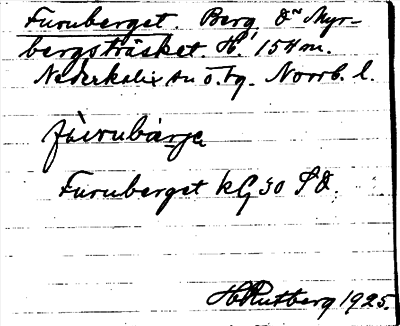 Furuberget. Berg Ö Myr-
bergsträsket. H. 154 m.
Nederkalix sn ö. tg. Norrb. l.
fúrubàrje
Furuberget kG 30 SV.
H Rutberg 1925.